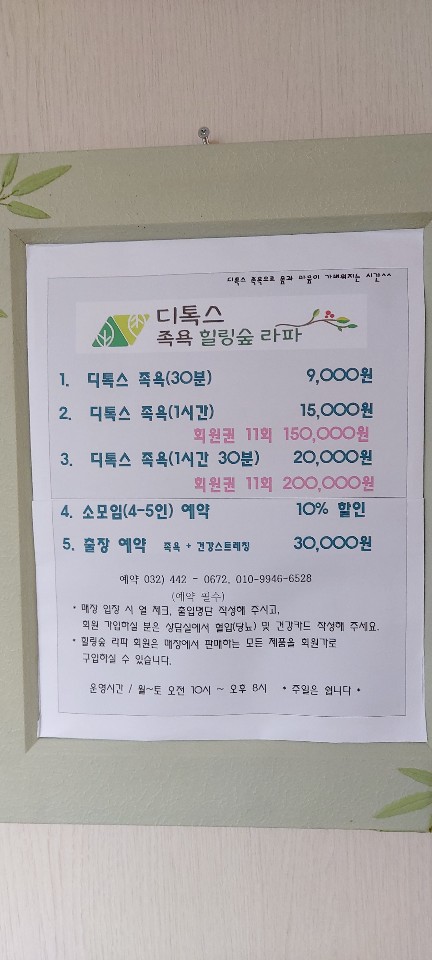 디톡스 족욕으로 몸과 마음이 가벼워지는 시간^^
디톡스
족욕 힐링숲 라파
1. 디톡스 족욕(30분) 9,000원
2. 디톡스 족욕(1시간) 15,000원
회원권 11회 150,000원
3. 디톡스 족욕(1시간 30분) 20,000원
회원권 11회 200,000원
4. 소모임(4-5인) 예약 10% 할인
5. 출장 예약 족욕 + 건강스트레칭 30,000원
예약 032) 442 - 0672, 010-9946-6528
(예약 필수)
* 매장 입장 시 열 체크, 출입명단 작성해 주시고,
회원 가입하실 분은 상담실에서 혈압(당뇨) 및 건강카드 작성해 주세요.
* 힐링숲 라파 회원은 매장에서 판매하는 모든 제품을 회원가로
구입하실 수 있습니다.
운영시간 / 월~토 오전 10시 ~ 오후 8시 * 주일은 쉽니다 *